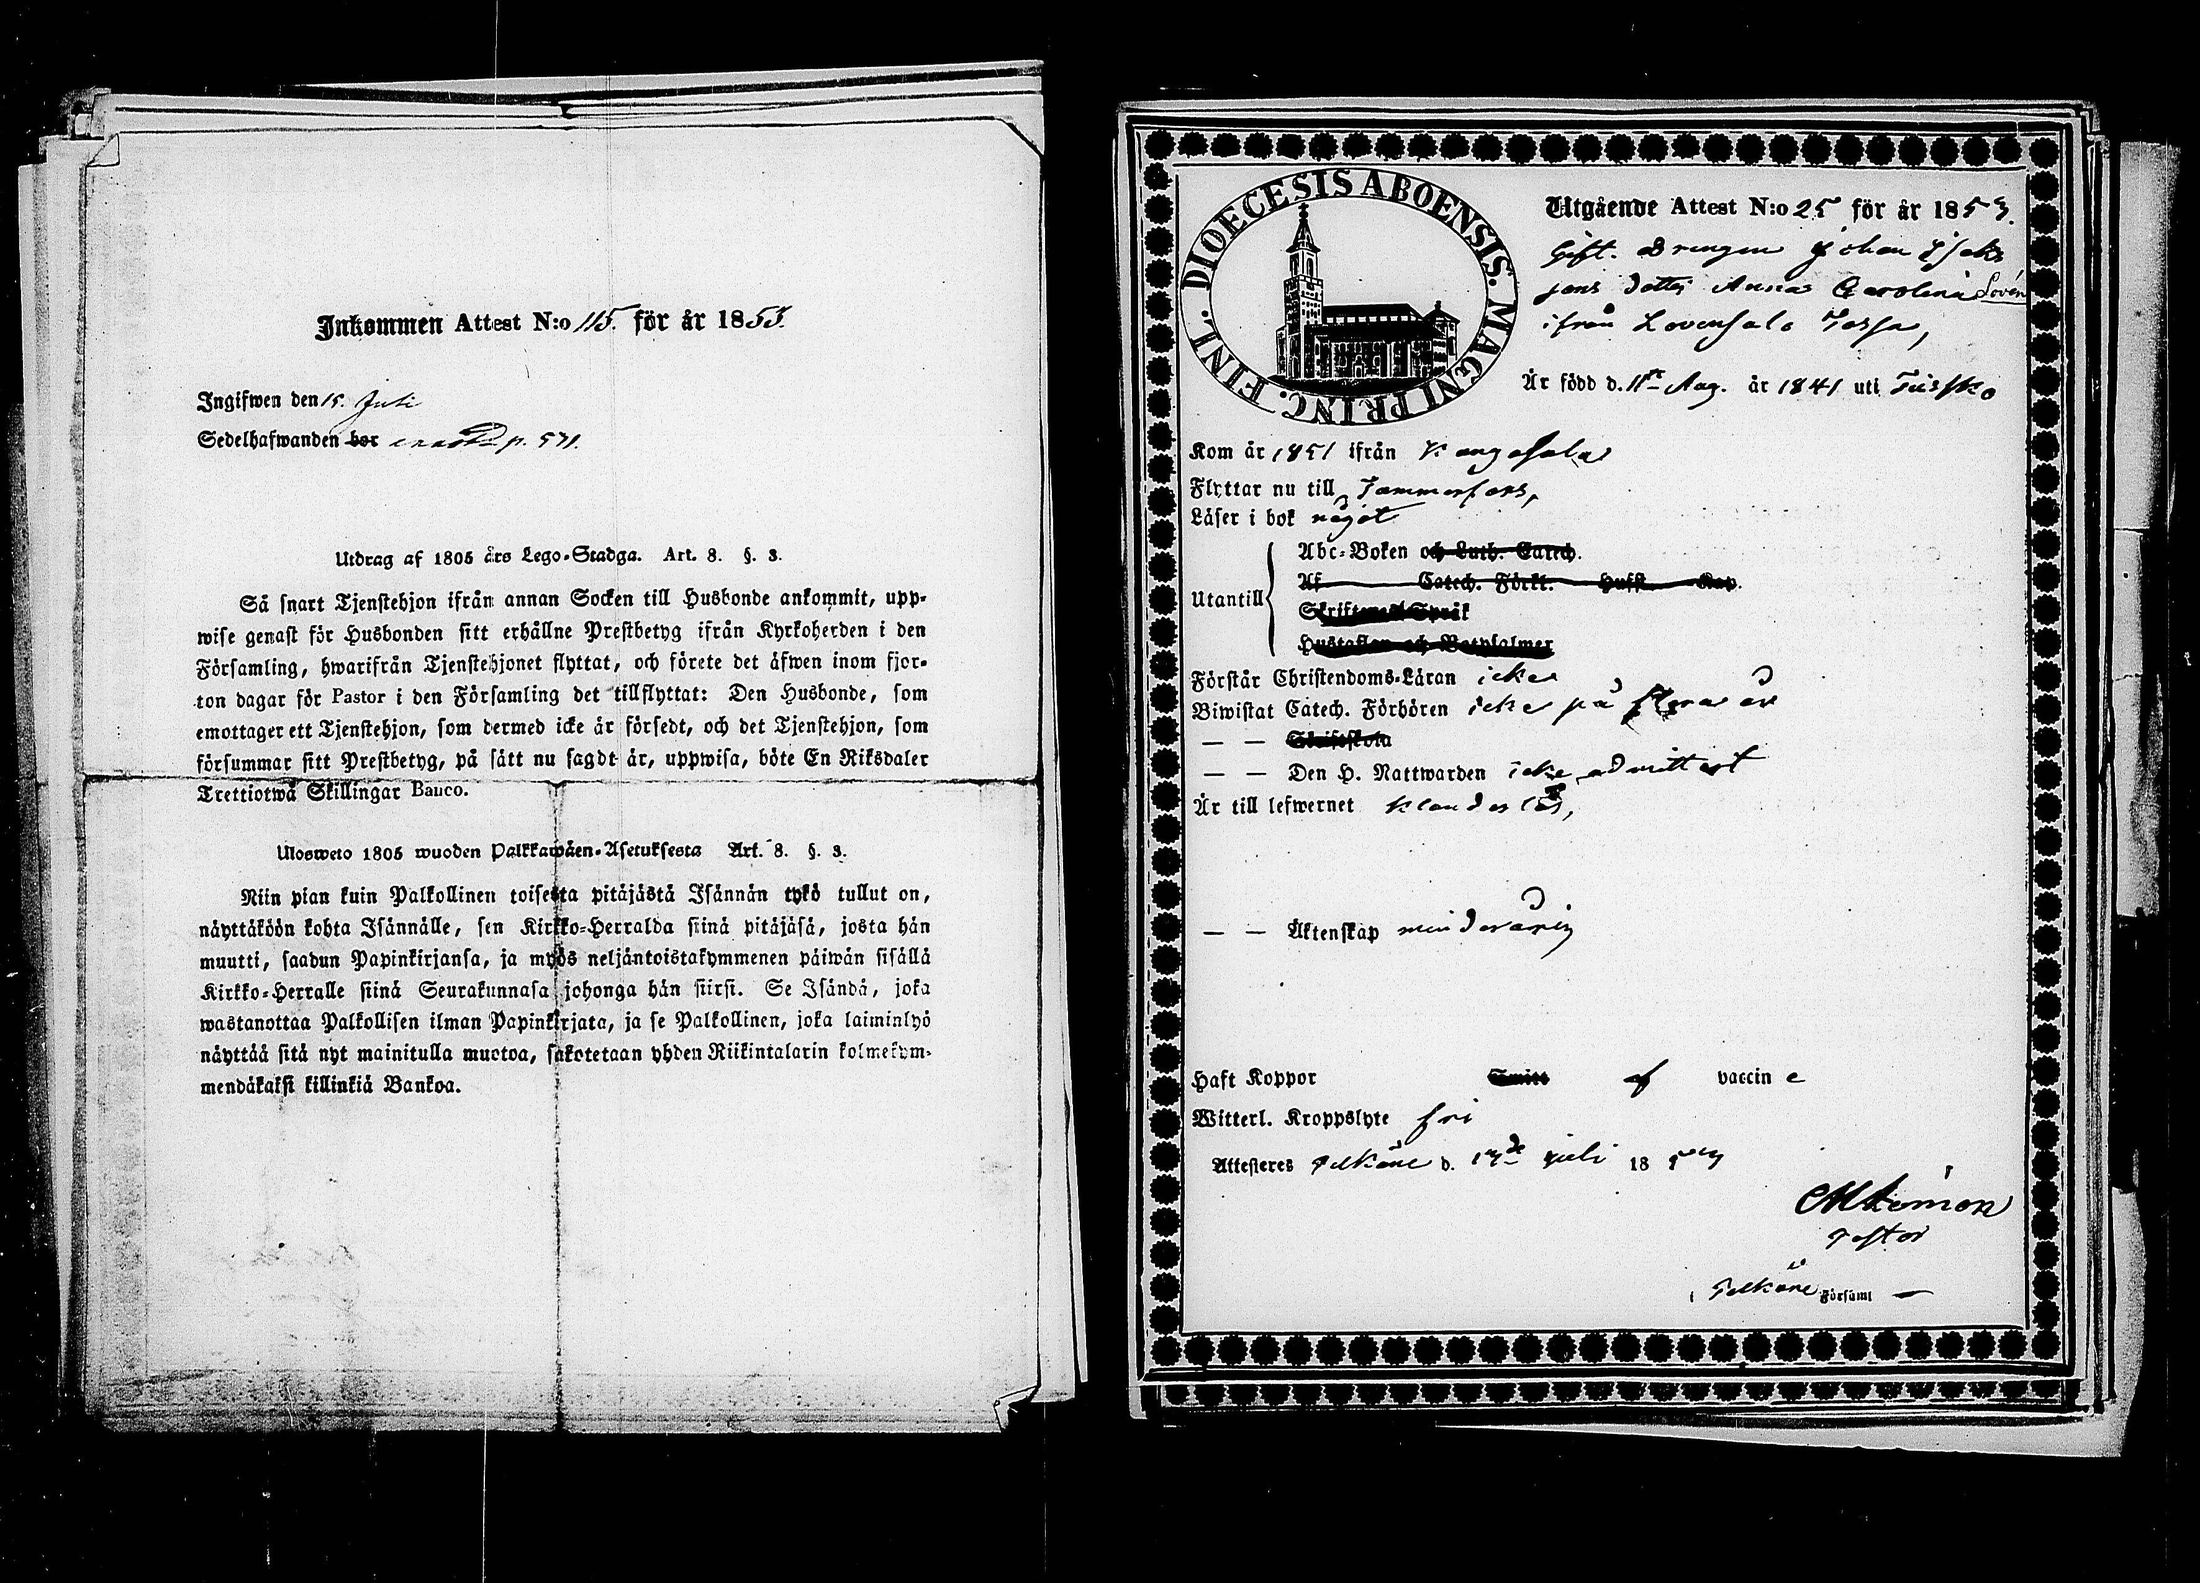 Inkommen Attest N:o 115. för år 1853.
Ingifwen den 15. Juli
Sedelhafwanden bor p. 571.
Utdrag af 1805 års Lego-Stadga. Art. 8. §. 3.
Så snart Tjenstehjon ifrån annan Socken till Husbonde ankommit, upp-
wise genast för Husbonden sitt erhållne Prestbetyg ifrån Kyrkoherden i den
Församling, hwarifrån Tjenstehjonet flyttat, och förete det äfwen inom fjor-
ton dagar för Pastor i den Församling det tillflyttat: Den Husbonde, som
emottager ett Tjenstehjon, som dermed icke är försedt, och det Tjenstehjon, som
försummar sitt Prestbetyg, på sätt nu sagdt är, uppwisa, böte En Riksdaler
Trettiotwå Skillingar Banco.
Ulosweto 1805 wuoden Palkkawäen-Asetuksesta Art. 8. §. 3.
Niin pian kuin Palkollinen toisesta pitäjästä Isännän tykö tullut on,
näyttäköön kohta Isännälle, sen Kirkko-Herralda siinä pitäjäsä, josta hän
muutti, saadun Papinkirjansa, ja myös neljäntoistakymmenen päiwän sisällä
Kirkko-Herralle siinä Seurakunnasa johonga hän siirsi. Se Isändä, joka
wastanottaa Palkollisen ilman Papinkirjata, ja se Palkollinen, joka laiminlyö
näyttää sitä nyt mainitulla muotoa, sakotetaan yhden Riikintalarin kolmekym-
mendäkaksi killinkiä Bankoa.
DIOECESIS ABOENSIS. MAGNI PRINC. FINL.
Utgående Attest N:o 25 för år 1853.
Gift. Drengen Johan Isaks
sons dotter Anna Carolina Lovén
ifrån Lovensalo Torpa,
Är född d. 11te Aug. år 1841 uti
Kom år 1851 ifrån Kangasala
Flyttar nu till Tammerfors,
Läser i bok något
Utantill
Abc-Boken och Luth. Catech.
Af Catech. Förkl. Hufst. Kap.
Skriftenes Språk
Hustaflan och Botpsalmer
Förstår Christendoms-Läran icke
Biwistat Catech. Förhören icke på flera år
— — Skriftskola
— — Den H. Nattwarden icke admittert
Är till lefwernet klanderlös,
— — Äktenskap minderårig
Haft Koppor Smitt af vaccine
Witterl. Kroppslyte fri
Attesteres Pelkäne d. 13de juli 1853
Pastor
i Pelkäne Församl —